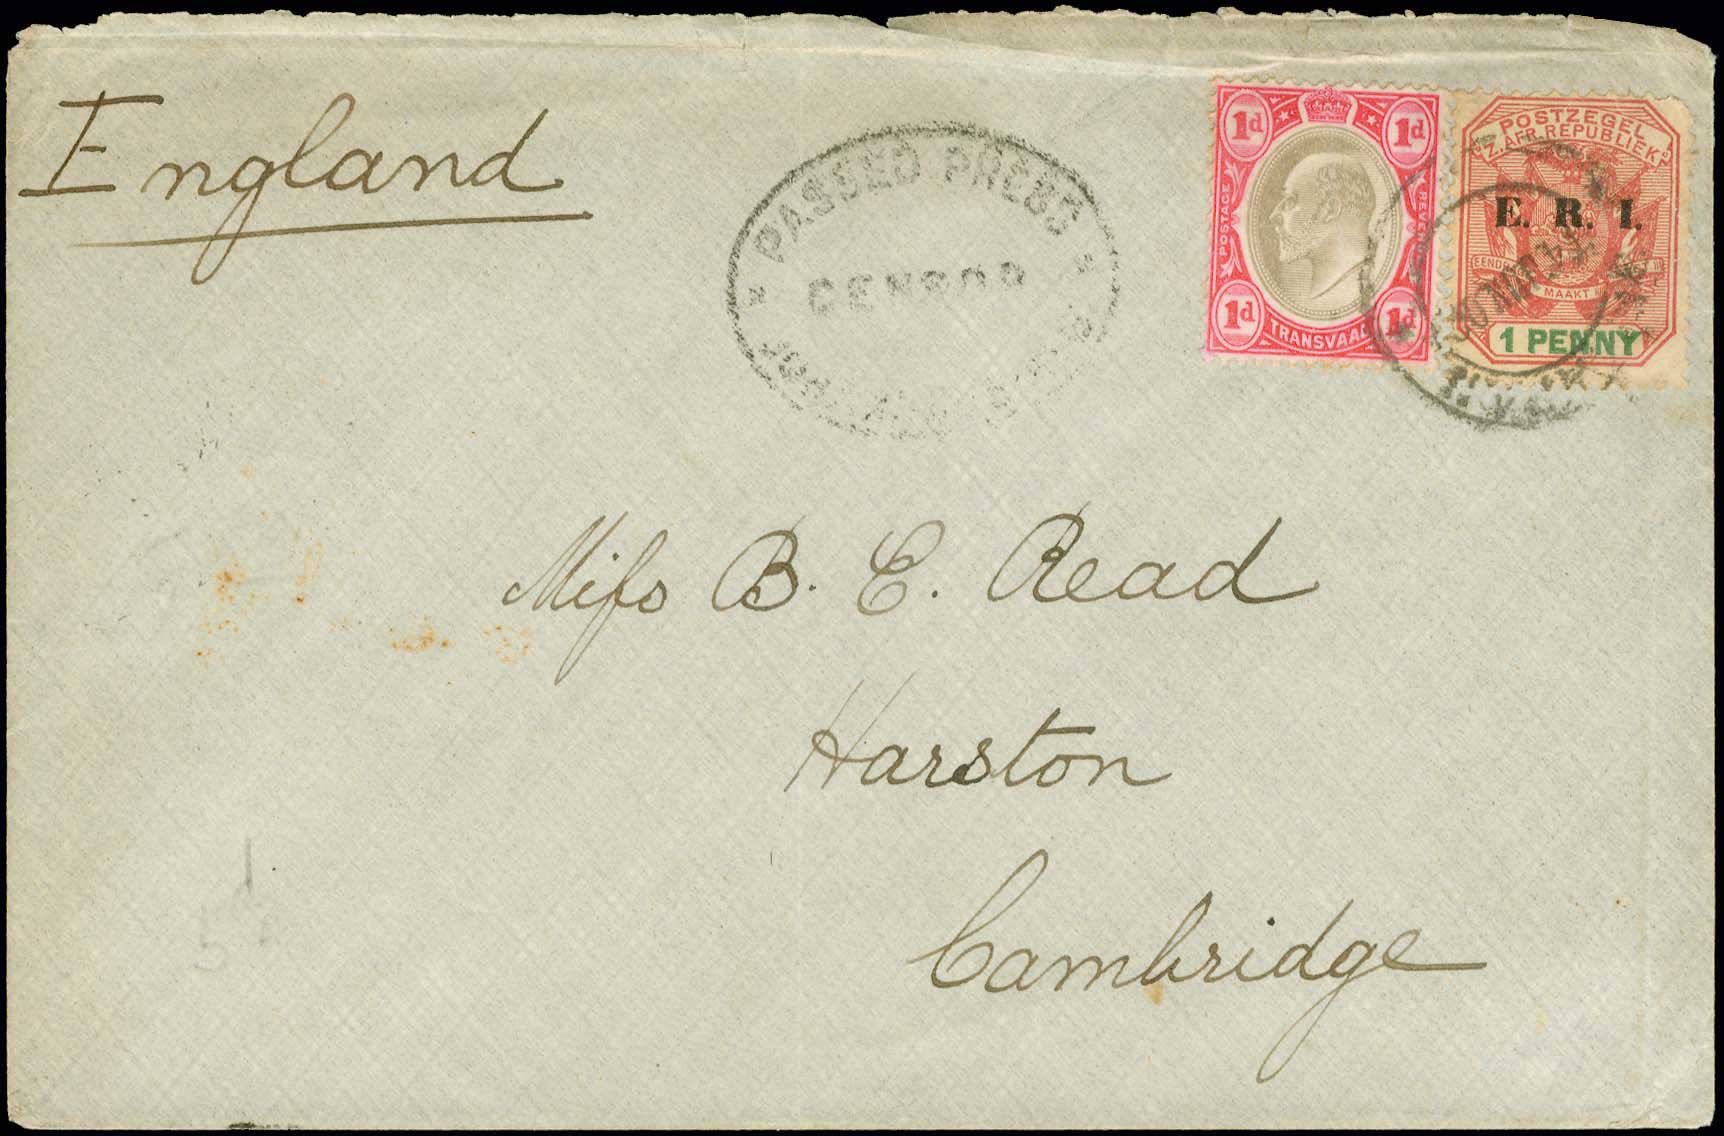 England
PASSED PRESS
CENSOR
1d 1d
POSTAGE
1d 1d
TRANSVAAL
POSTZEGEL
Z. AFR. REPUBLIEK
E. R. I.
EENDR
MAAKT
1 PENNY
Miſs B. E. Read
Harston
Cambridge